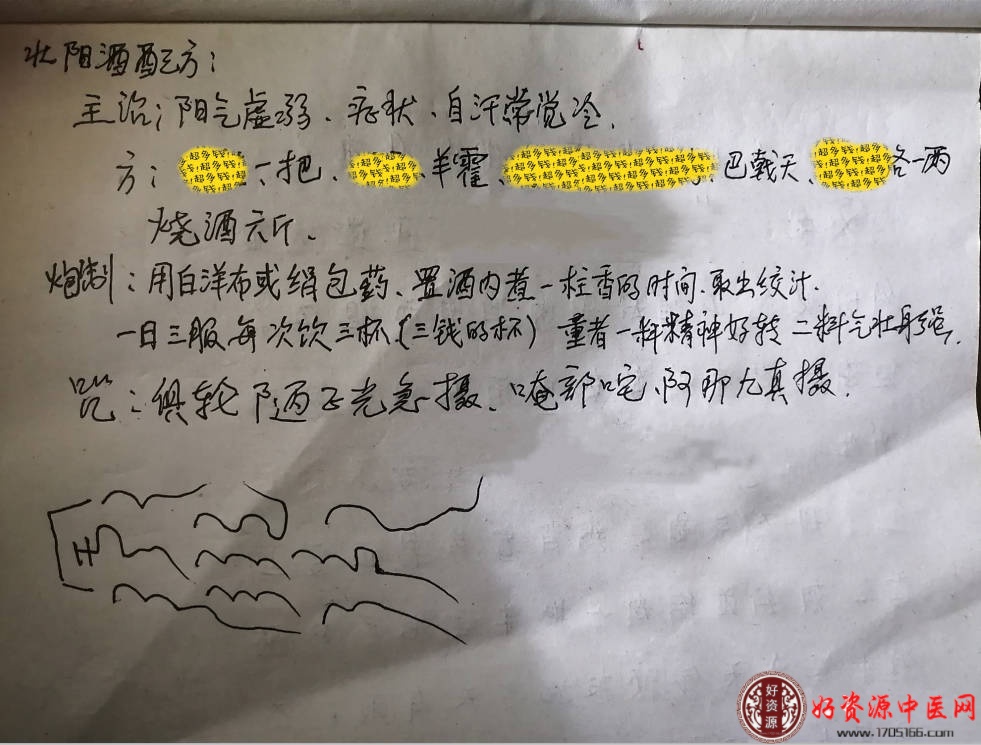 壮阳酒配方：
主治；阳气虚弱、症状、自汗常觉冷.
方；一把、羊霍、巴戟天、各一两
烧酒六斤.
炮制：用白洋布或绢包药、置酒内煮一柱香的时间.取出绞汁.
一日三服.每次饮三杯.(三钱的杯) 重者一料精神好转 二料气壮身强.
咒：俱轮 正光急摄、唵部啶、阿那九真摄.
超多钱,超多钱,超多钱
好资源
好资源中医网
www.1705166.com